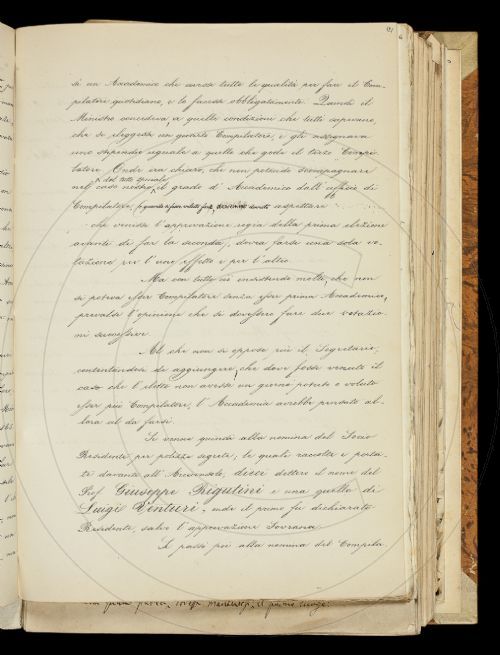 si un Accademico che avesse tutte le qualità per fare il Com-
pilatore quotidiano, e lo facesse obbligatamente. Quando il
Ministro concedeva, a quelle condizioni che tutti sapevano,
che si eleggesse un quarto Compilatore, e gli assegnava
uno stipendio uguale a quello che gode il terzo Compi-
latore. Onde era chiaro, che non potendo scompagnare
nel caso nostro, il grado d'Accademico dall'ufficio di
e del tutto speciale
Compilatore, aspettare
che venisse l'approvazione regia della prima elezione
avanti di far la seconda, dovea farsi una sola vo-
tazione per l'uno effetto e per l'altro.
Ma con tutto ciò insistendo molti, che non
si poteva esser Compilatore senza esser prima Accademico,
prevalse l'opinione che si dovessero fare due votazio-
ni successive.
Al che non si oppose più il Segretario,
contentandosi di aggiungere, che dove fosse venuto il
caso che l'eletto non avesse un giorno potuto o voluto
esser più Compilatore, l'Accademia avrebbe pensato al-
lora al da farsi.
Si venne quindi alla nomina del Socio
Residente per polizze segrete; le quali raccolte e porta-
te davanti all'Arciconsolo, dieci dettero il nome del
Prof. Giuseppe Rigutini e una quello di
Luigi Venturi; onde il primo fu dichiarato
Residente, salvo l'approvazione Sovrana.
Si passò poi alla nomina del Compila-